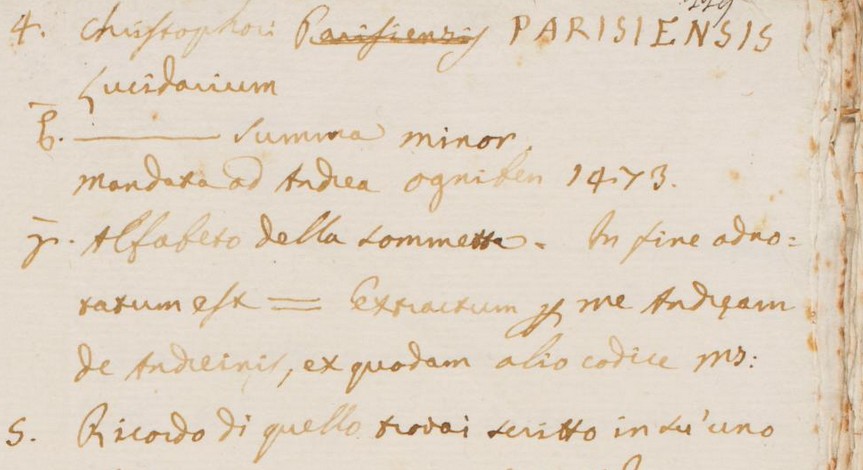 4. Christophori Parisiensis PARISIENSIS
Lucidarium
b. ——— Summa minor.
mandata ad Andrea ogniben 1473.
Alfabeto della sommetta. In fine adno=
tatum est = Extractum p me Andream
de Andreinis, ex quodam alio codice ms:
5. Ricordo di quello trovai scritto in su'uno